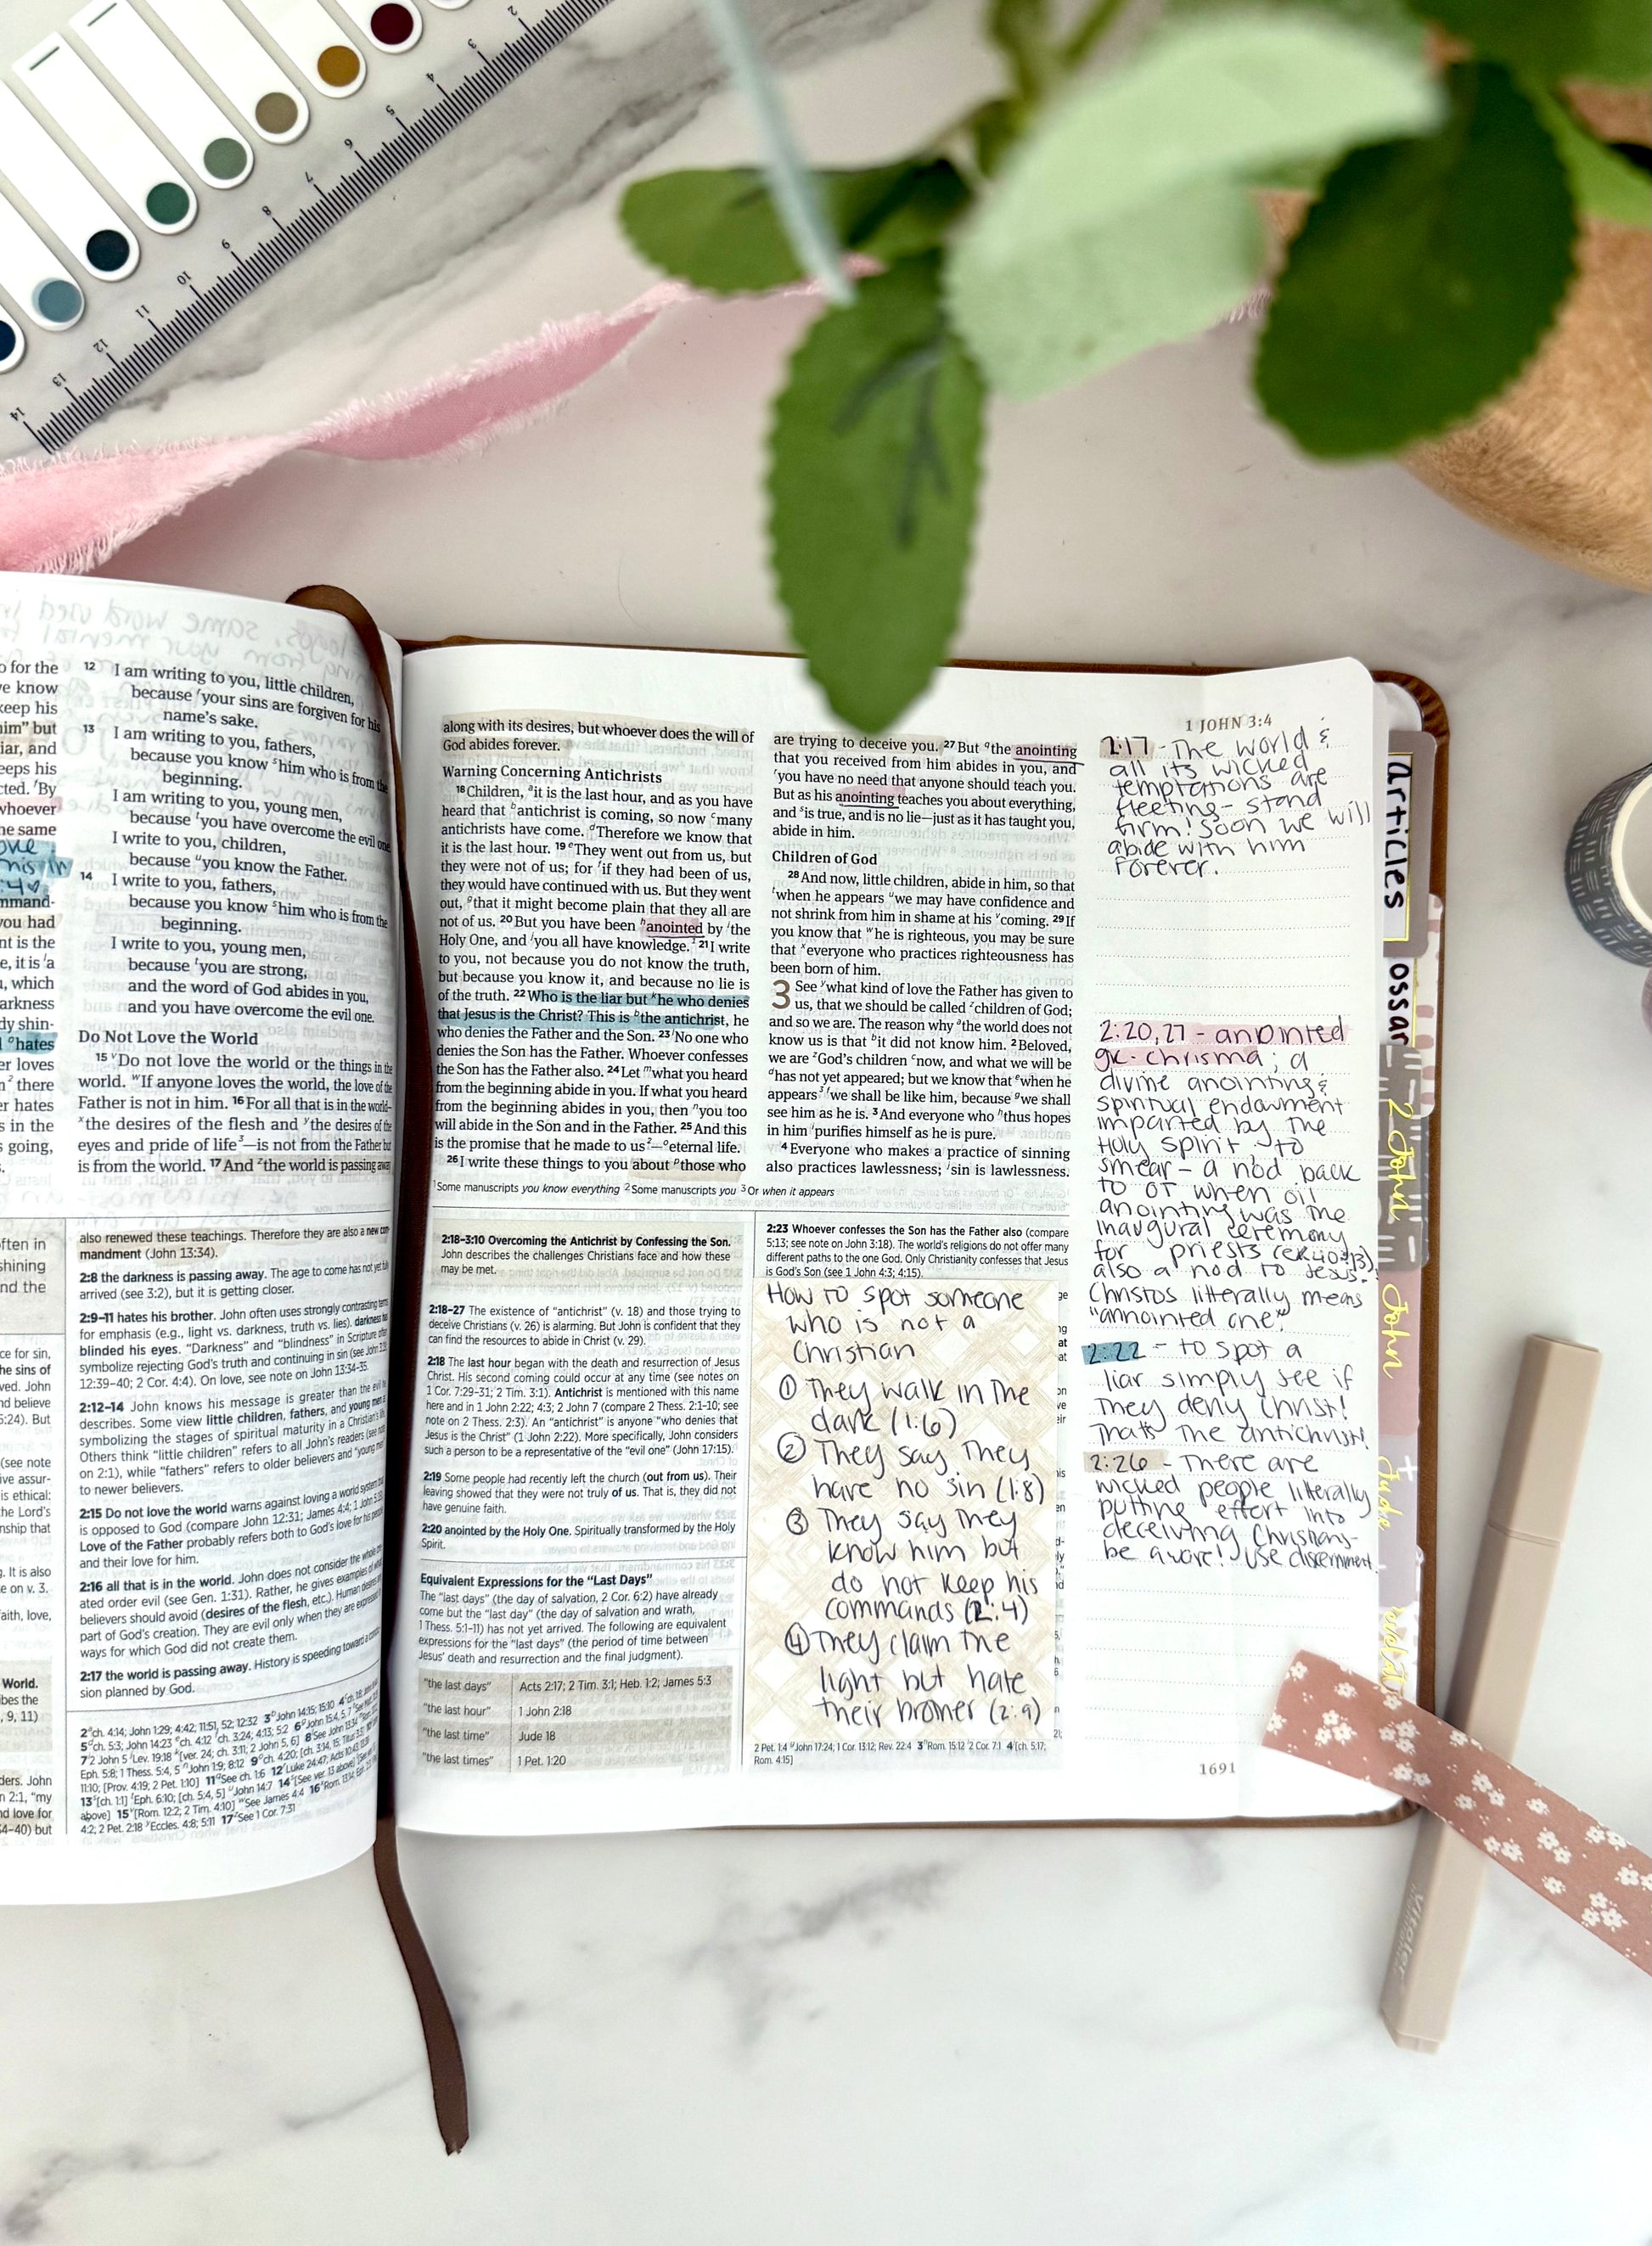 2
3
4
5
6
7
8
9
10
11
12
13
14
for the
know
keep his
him" but
iar, and
eeps his
cted. ʳBy
whoever
he same
mmand-
you had
nt is the
e, it is ⁱa
, which
arkness
dy shin-
ᵒhates
er loves
there
er hates
s in the
going,
12 I am writing to you, little children,
because ʳyour sins are forgiven for his
name's sake.
13 I am writing to you, fathers,
because you know ˢhim who is from the
beginning.
I am writing to you, young men,
because ᵗyou have overcome the evil one.
I write to you, children,
because ᵘyou know the Father.
14 I write to you, fathers,
because you know ˢhim who is from the
beginning.
I write to you, young men,
because ᵗyou are strong,
and the word of God abides in you,
and you have overcome the evil one.
Do Not Love the World
15 ᵛDo not love the world or the things in the
world. ʷIf anyone loves the world, the love of the
Father is not in him. 16 For all that is in the world—
ˣthe desires of the flesh and ʸthe desires of the
eyes and pride of life³—is not from the Father but
is from the world. 17 And ᶻthe world is passing away
also renewed these teachings. Therefore they are also a new com-
mandment (John 13:34).
2:8 the darkness is passing away. The age to come has not yet fully
arrived (see 3:2), but it is getting closer.
2:9–11 hates his brother. John often uses strongly contrasting terms
for emphasis (e.g., light vs. darkness, truth vs. lies). darkness has
blinded his eyes. "Darkness" and "blindness" in Scripture often
symbolize rejecting God's truth and continuing in sin (see John 3:20;
12:39–40; 2 Cor. 4:4). On love, see note on John 13:34–35.
2:12–14 John knows his message is greater than the evil he
describes. Some view little children, fathers, and young men as
symbolizing the stages of spiritual maturity in a Christian's life.
Others think "little children" refers to all John's readers (see note
on 2:1), while "fathers" refers to older believers and "young men"
to newer believers.
2:15 Do not love the world warns against loving a world system that
is opposed to God (compare John 12:31; James 4:4; 1 John 5:19).
Love of the Father probably refers both to God's love for his people
and their love for him.
2:16 all that is in the world. John does not consider the whole cre-
ated order evil (see Gen. 1:31). Rather, he gives examples of what
believers should avoid (desires of the flesh, etc.). Human desires are
part of God's creation. They are evil only when they are expressed in
ways for which God did not create them.
2:17 the world is passing away. History is speeding toward a conclu-
sion planned by God.
along with its desires, but whoever does the will of
God abides forever.
Warning Concerning Antichrists
18 Children, ᵃit is the last hour, and as you have
heard that ᵇantichrist is coming, so now ᶜmany
antichrists have come. ᵈTherefore we know that
it is the last hour. 19 ᵉThey went out from us, but
they were not of us; for ᶠif they had been of us,
they would have continued with us. But they went
out, ᵍthat it might become plain that they all are
not of us. 20 But you have been ʰanointed by ⁱthe
Holy One, and ʲyou all have knowledge.¹ 21 I write
to you, not because you do not know the truth,
but because you know it, and because no lie is
of the truth. 22 Who is the liar but ᵏhe who denies
that Jesus is the Christ? This is ᵇthe antichrist, he
who denies the Father and the Son. 23 ˡNo one who
denies the Son has the Father. Whoever confesses
the Son has the Father also. 24 Let ᵐwhat you heard
from the beginning abide in you. If what you heard
from the beginning abides in you, then ⁿyou too
will abide in the Son and in the Father. 25 And this
is the promise that he made to us²—ᵒeternal life.
26 I write these things to you about ᵖthose who
are trying to deceive you. 27 But ᑫthe anointing
that you received from him abides in you, and
ʳyou have no need that anyone should teach you.
But as his anointing teaches you about everything,
and ˢis true, and is no lie—just as it has taught you,
abide in him.
Children of God
28 And now, little children, abide in him, so that
ᵗwhen he appears ᵘwe may have confidence and
not shrink from him in shame at his ᵛcoming. 29 If
you know that ʷhe is righteous, you may be sure
that ˣeveryone who practices righteousness has
been born of him.
3 See ʸwhat kind of love the Father has given to
us, that we should be called ᶻchildren of God;
and so we are. The reason why ᵃthe world does not
know us is that ᵇit did not know him. 2 Beloved,
we are ᶻGod's children ᶜnow, and what we will be
ᵈhas not yet appeared; but we know that ᵉwhen he
appears³ ᶠwe shall be like him, because ᵍwe shall
see him as he is. 3 And everyone who ʰthus hopes
in him ⁱpurifies himself as he is pure.
4 Everyone who makes a practice of sinning
also practices lawlessness; ʲsin is lawlessness.
¹Some manuscripts you know everything ²Some manuscripts you ³Or when it appears
2:18–3:10 Overcoming the Antichrist by Confessing the Son.
John describes the challenges Christians face and how these
may be met.
2:18–27 The existence of "antichrist" (v. 18) and those trying to
deceive Christians (v. 26) is alarming. But John is confident that they
can find the resources to abide in Christ (v. 29).
2:18 The last hour began with the death and resurrection of Jesus
Christ. His second coming could occur at any time (see notes on
1 Cor. 7:29–31; 2 Tim. 3:1). Antichrist is mentioned with this name
here and in 1 John 2:22; 4:3; 2 John 7 (compare 2 Thess. 2:1–10; see
note on 2 Thess. 2:3). An "antichrist" is anyone "who denies that
Jesus is the Christ" (1 John 2:22). More specifically, John considers
such a person to be a representative of the "evil one" (John 17:15).
2:19 Some people had recently left the church (out from us). Their
leaving showed that they were not truly of us. That is, they did not
have genuine faith.
2:20 anointed by the Holy One. Spiritually transformed by the Holy
Spirit.
Equivalent Expressions for the "Last Days"
The "last days" (the day of salvation, 2 Cor. 6:2) have already
come but the "last day" (the day of salvation and wrath,
1 Thess. 5:1–11) has not yet arrived. The following are equivalent
expressions for the "last days" (the period of time between
Jesus' death and resurrection and the final judgment).
"the last days" Acts 2:17; 2 Tim. 3:1; Heb. 1:2; James 5:3
"the last hour" 1 John 2:18
"the last time" Jude 18
"the last times" 1 Pet. 1:20
2:23 Whoever confesses the Son has the Father also (compare
5:13; see note on John 3:18). The world's religions do not offer many
different paths to the one God. Only Christianity confesses that Jesus
is God's Son (see 1 John 4:3; 4:15).
How to spot someone
who is not a
Christian
① They walk in the
dark (1:6)
② They say they
have no sin (1:8)
③ They say they
know him but
do not keep his
commands (2:4)
④ They claim the
light but hate
their brother (2:9)
2 Pet. 1:4 ᵘJohn 17:24; 1 Cor. 13:12; Rev. 22:4 3ʰRom. 15:12 ⁱ2 Cor. 7:1 4ʲ[ch. 5:17;
Rom. 4:15]
1 JOHN 3:4
2:17 - The world &
all its wicked
temptations are
fleeting - stand
firm! Soon we will
abide with him
forever.
2:20,27 - anointed
gk. chrisma; a
divine anointing &
spiritual endowment
imparted by the
Holy Spirit, to
smear - a nod back
to OT when oil
anointing was the
inaugural ceremony
for priests (ex 40:13)
also a nod to Jesus.
Christos litterally means
"annointed one"
2:22 - to spot a
liar simply see if
they deny Christ!
That's the antichrist!
2:26 - There are
wicked people literally
putting effort into
deceiving Christians -
be aware! Use discernment.
1691
articles
ossar
2 John
John
Jude